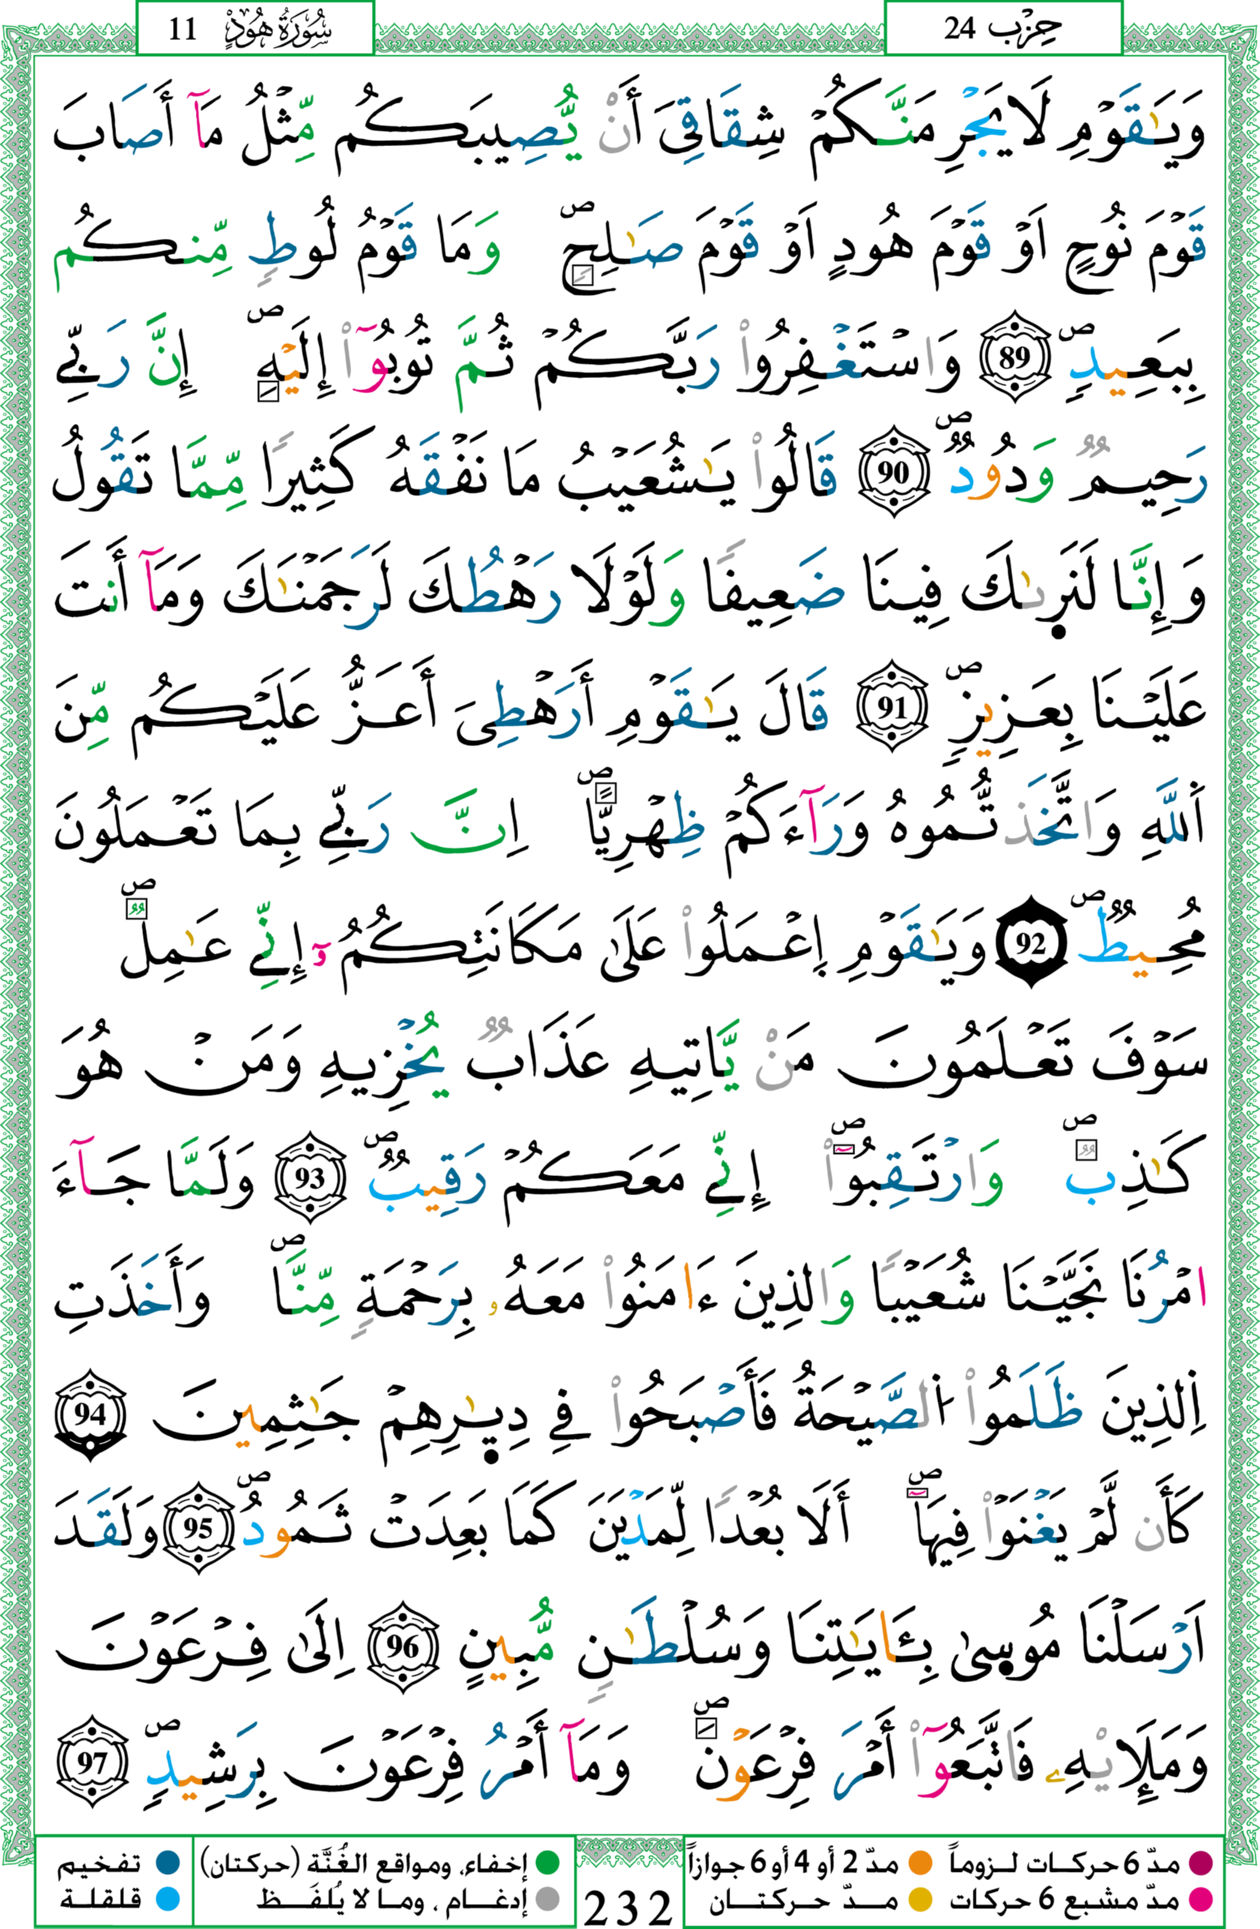 حِزْب 24
سُورَةُ هُودٍ 11
وَيَٰقَوْمِ لَا يَجْرِمَنَّكُمْ شِقَاقِيَ أَنْ يُّصِيبَكُم مِّثْلُ مَآ أَصَابَ
قَوْمَ نُوحٍ اَوْ قَوْمَ هُودٍ اَوْ قَوْمَ صَٰلِحٍۖ وَمَا قَوْمُ لُوطٍ مِّنكُم
بِبَعِيدٍۖ 89 وَاسْتَغْفِرُواْ رَبَّكُمْ ثُمَّ تُوبُوٓاْ إِلَيْهِۖ إِنَّ رَبِّي
رَحِيمٌ وَدُودٌۖ 90 قَالُواْ يَٰشُعَيْبُ مَا نَفْقَهُ كَثِيرًا مِّمَّا تَقُولُ
وَإِنَّا لَنَرٜىٰكَ فِينَا ضَعِيفًا وَلَوْلَا رَهْطُكَ لَرَجَمْنَٰكَ وَمَآ أَنتَ
عَلَيْنَا بِعَزِيزٍۖ 91 قَالَ يَٰقَوْمِ أَرَهْطِيَ أَعَزُّ عَلَيْكُم مِّنَ
اَ۬للَّهِ وَاتَّخَذتُّمُوهُ وَرَآءَكُمْ ظِهْرِيًّاۖ اِنَّ رَبِّي بِمَا تَعْمَلُونَ
مُحِيطٌۖ 92 وَيَٰقَوْمِ اِعْمَلُواْ عَلَىٰ مَكَانَتِكُمُۥٓ إِنِّي عَٰمِلٌۖ
سَوْفَ تَعْلَمُونَ مَنْ يَّاتِيهِ عَذَابٌ يُخْزِيهِ وَمَنْ هُوَ
كَٰذِبٌۖ وَارْتَقِبُوٓاْۖ إِنِّي مَعَكُمْ رَقِيبٌۖ 93 وَلَمَّا جَآءَ
امْرُنَا نَجَّيْنَا شُعَيْبًا وَالذِينَ ءَامَنُواْ مَعَهُۥ بِرَحْمَةٍ مِّنَّاۖ وَأَخَذَتِ
اِ۬لذِينَ ظَلَمُواْ اُ۬لصَّيْحَةُ فَأَصْبَحُواْ فِي دِيٰ۪رِهِمْ جَٰثِمِينَ 94
كَأَن لَّمْ يَغْنَوْاْ فِيهَآۖ أَلَا بُعْدًا لِّمَدْيَنَ كَمَا بَعِدَتْ ثَمُودُۖ 95 وَلَقَدَ
اَرْسَلْنَا مُوسٜىٰ بِـَٔايَٰتِنَا وَسُلْطَٰنٍ مُّبِينٍ 96 اِلَىٰ فِرْعَوْنَ
وَمَلَإِيْهِۦ فَاتَّبَعُوٓاْ أَمْرَ فِرْعَوْنَۖ وَمَآ أَمْرُ فِرْعَوْنَ بِرَشِيدٍۖ 97
مدّ 6 حركات لـزوماً مدّ 2 أو 4 أو 6 جوازاً إخفاء، ومواقع الغُنَّة (حركتان) تفخيم
مدّ مشبع 6 حركات مـدّ حـركتـان إدغـام ، ومـا لا يُلفَـظ قلقلة
232